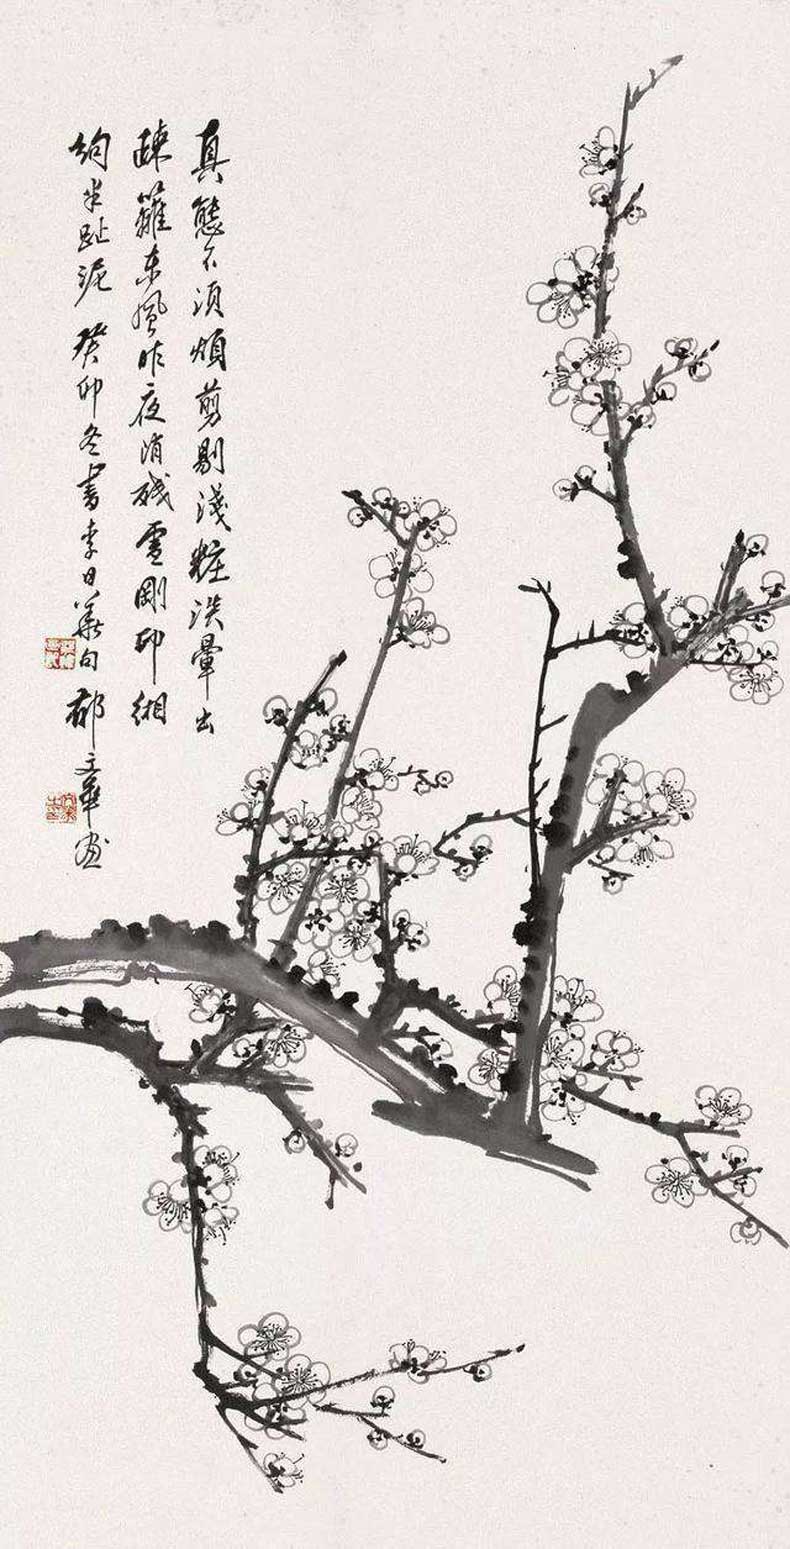 真態不須煩剪剔淺粧淡暈出
疎籬東風昨夜消殘雪剛印緗
絢半趾泥 癸卯冬書李日華句 郁文華画